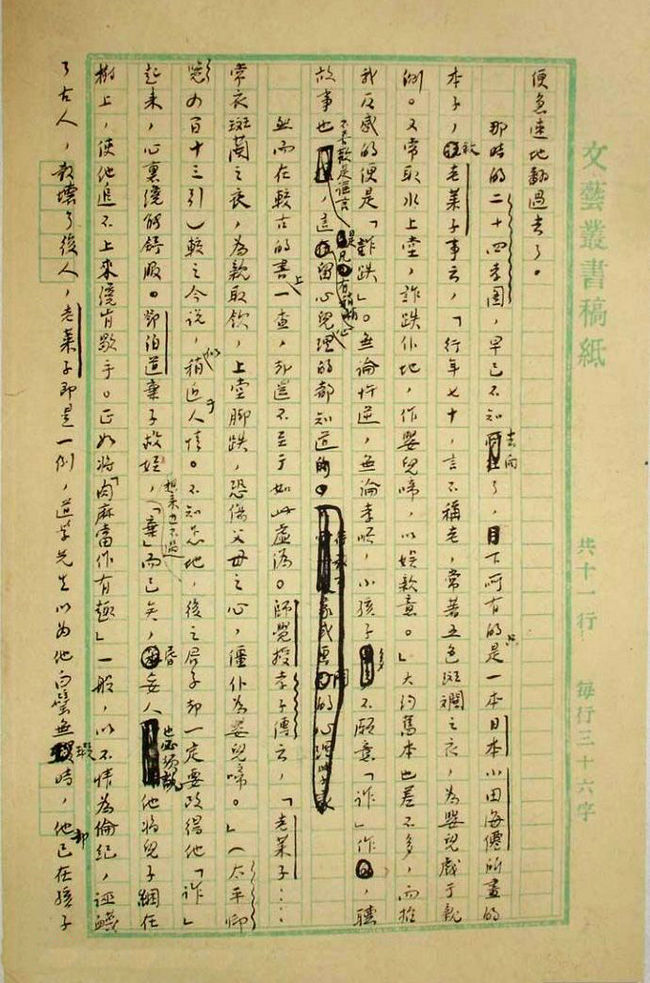 文藝叢書稿紙 共十一行 每行三十六字
便急速地翻過去了。
那時的二十四孝圖，早已不知去向了，目下所有的只是一本日本小田海僊所畫的
本子，敘老萊子事云，「行年七十，言不稱老，常著五色斑斕之衣，為嬰兒戲于親
側。又常取水上堂，詐跌仆地，作嬰兒啼，以娛親意。」大約舊本也差不多，而招
我反感的便是「詐跌」。無論忤逆，無論孝順，小孩子多不願意「詐」作，聽
故事也不喜歡是謠言，這是凡有稍稍留心兒理的都知道的。
然而在較古的書上一查，卻還不至于如此虛偽。師覺授孝子傳云，「老萊子……
常衣斑蘭之衣，為親取飲，上堂腳跌，恐傷父母之心，僵仆為嬰兒啼。」（太平御
覽四百十三引）較之今說，似稍近于人情。不知怎地，後之君子卻一定要改得他「詐」
起來，心裏纔能舒服。鄧伯道棄子救姪，想來也不過「棄」而已矣，昏妄人也必須說他將兒子綑在
樹上，使他追不上來纔肯歇手。正如將「肉麻當作有趣」一般，以不情為倫紀，誣衊
了古人，教壞了後人，老萊子即是一例，道學先生以為他白璧無瑕時，他卻已在孩子